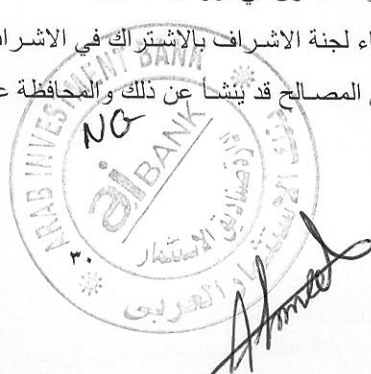 اء لجنة الاشراف بالاشتراك في الاشرا
المصالح قد ينشأ عن ذلك والمحافظة ع
ARAB INVESTMENT BANK
NG
ai BANK
إدارة صناديق الاستثمار
العربى
٣٠
Ahmed